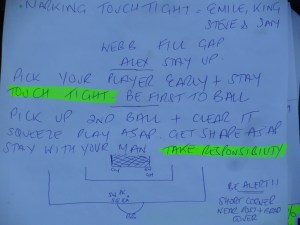 . MARKING TOUCH TIGHT = EMILE, KING
STEVE & JAY
WEBB FILL GAP
ALEX STAY UP
PICK YOUR PLAYER EARLY + STAY
TOUCH TIGHT BE FIRST TO BALL
PICK UP 2ND BALL + CLEAR IT
SQUEEZE PLAY ASAP GET SHAPE ASAP
STAY WITH YOUR MAN TAKE RESPONSIBILITY
BE ALERT!!
SHORT CORNER
NEAR POST + REAR
COVER